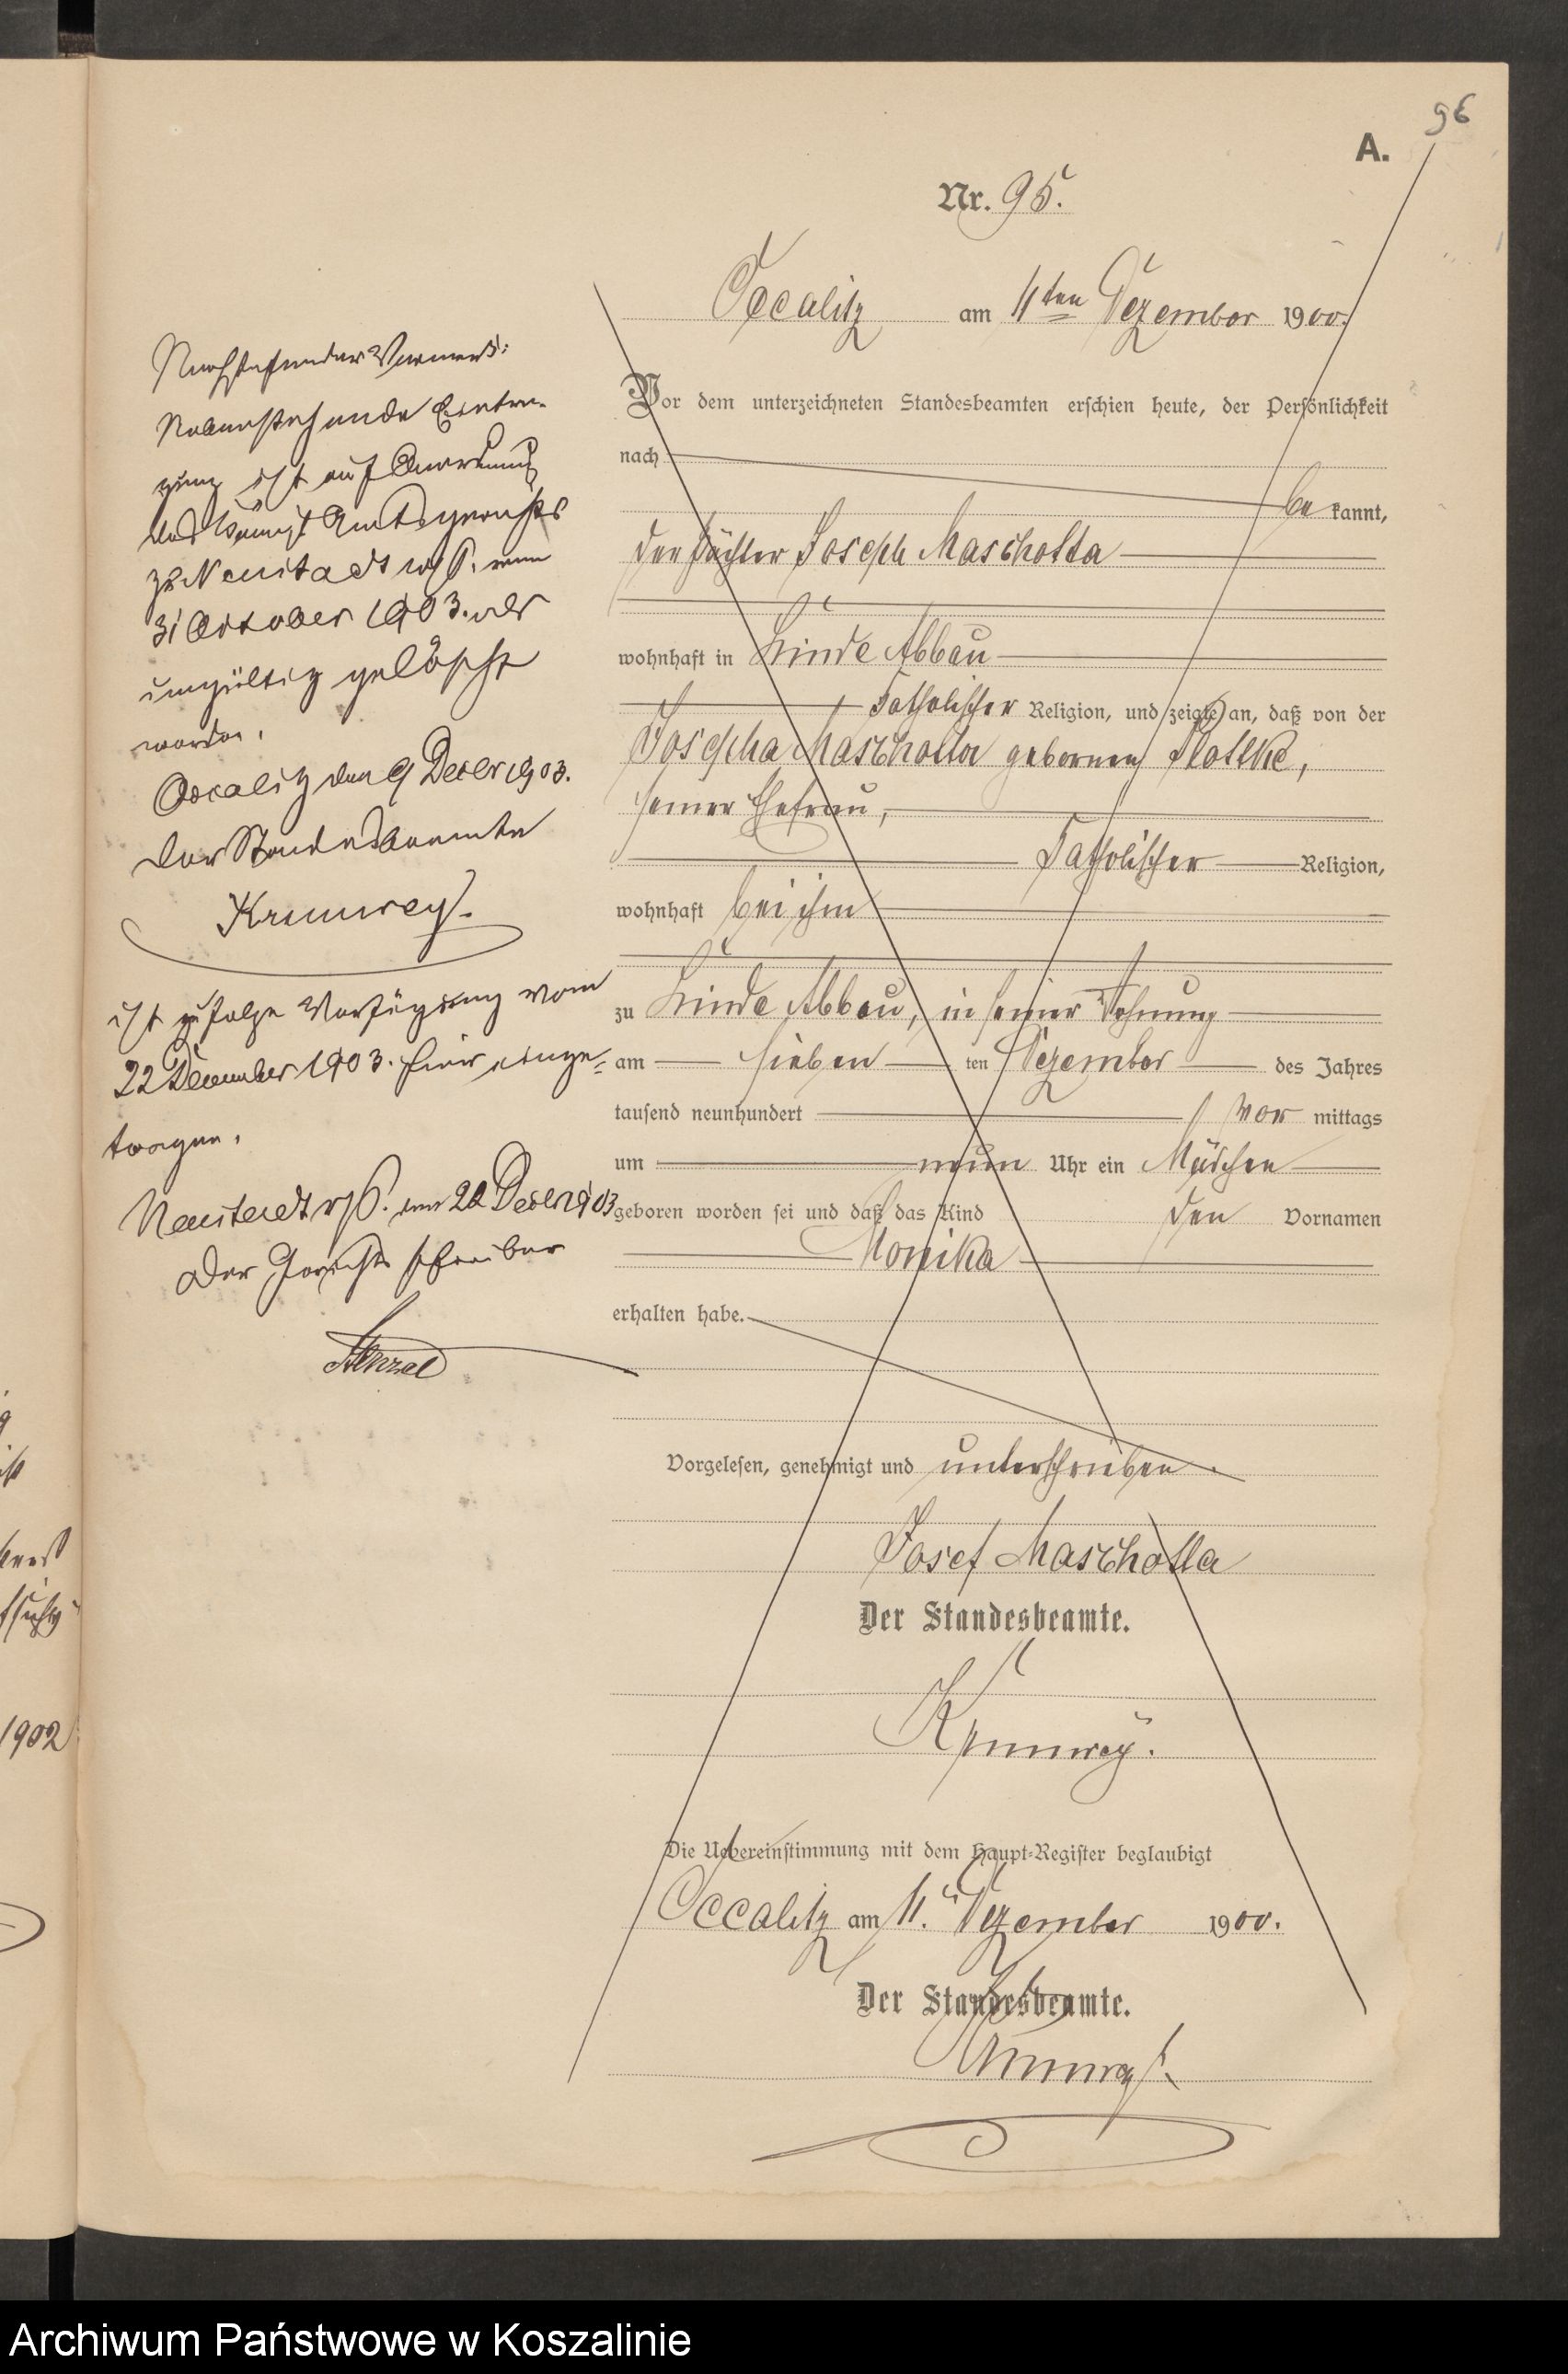 96
A.
Nr. 95.
Occalitz am 11ten Dezember 1900.
Vor dem unterzeichneten Standesbeamten erschien heute, der Persönlichkeit
nach
be kannt,
der Pächter Joseph Maschotta
wohnhaft in Linde Abbau
katholischer Religion, und zeigte an, daß von der
Josepha Maschotta geborenen Plottke,
seiner Ehefrau,
katholischer Religion,
wohnhaft bei ihm
zu Linde Abbau, in seiner Wohnung
am sieben ten Dezember des Jahres
tausend neunhundert vor mittags
um neun Uhr ein Mädchen
geboren worden sei und daß das Kind den Vornamen
Monika
erhalten habe.
Vorgelesen, genehmigt und unterschrieben.
Josef Maschotta
Der Standesbeamte.
Krumrey.
Die Uebereinstimmung mit dem Haupt-Register beglaubigt
Occalitz am 11. Dezember 1900.
Der Standesbeamte.
Krumrey.
Nachstehender Vermerk:
Nebenstehende Eintra-
gung ist auf Anordnung
des Königl Amtsgerichts
zu Neustadt w/P. vom
31 Oktober 1903. als
ungültig gelöscht
worden.
Occalitz den 9 Decbr 1903.
Der Standesbeamte
Krumrey.
ist zufolge Verfügung vom
22 December 1903. hier einge-
tragen.
Neustadt w/P. den 22 Decbr 1903
Der Gerichtsschreiber
1902
Archiwum Państwowe w Koszalinie